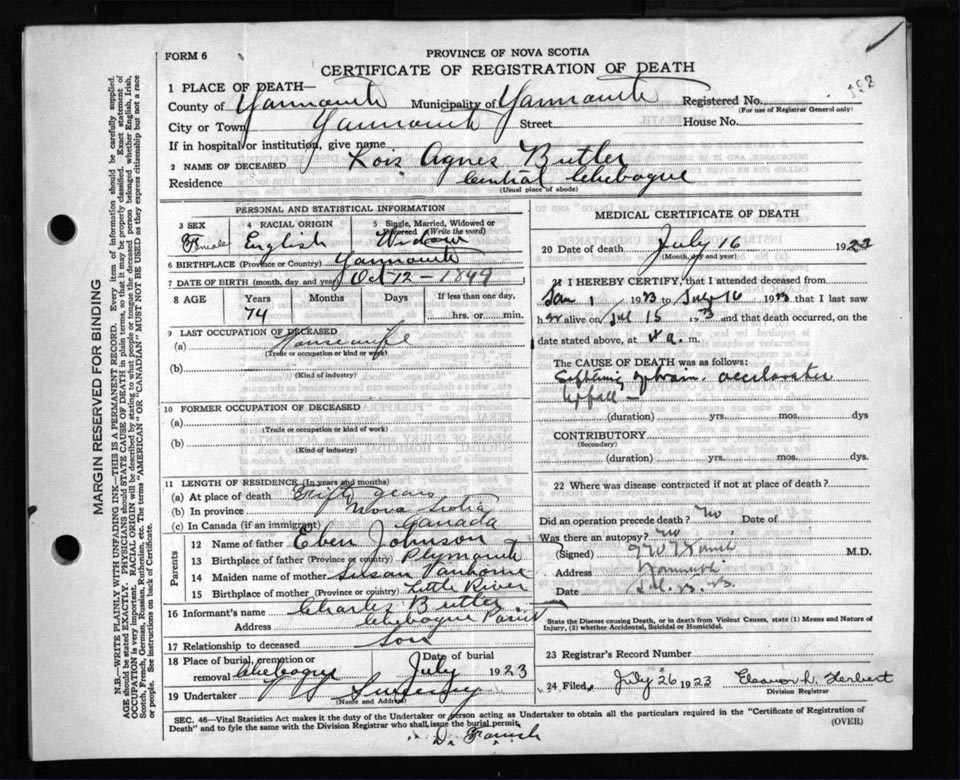 FORM 6
PROVINCE OF NOVA SCOTIA
CERTIFICATE OF REGISTRATION OF DEATH
1 PLACE OF DEATH—
County of Yarmouth Municipality of Yarmouth Registered No.
(For use of Registrar General only)
City or Town Yarmouth Street House No.
If in hospital or institution, give name
2 NAME OF DECEASED Lois Agnes Butler
Residence Central Chebogue
(Usual place of abode)
PERSONAL AND STATISTICAL INFORMATION
3 SEX
Female
4 RACIAL ORIGIN
English
5 Single, Married, Widowed or Divorced (Write the word)
Widow
6 BIRTHPLACE (Province or Country) Yarmouth
7 DATE OF BIRTH (month, day and year) Oct 12 - 1849
8 AGE Years Months Days If less than one day,
74 hrs. or min.
9 LAST OCCUPATION OF DECEASED
(a) Housewife
(Trade or occupation or kind or work)
(b)
(Kind of industry)
10 FORMER OCCUPATION OF DECEASED
(a)
(Trade or occupation or kind of work)
(b)
(Kind of industry)
11 LENGTH OF RESIDENCE (In years and months)
(a) At place of death Fifty years
(b) In province Nova Scotia
(c) In Canada (if an immigrant) Canada
Parents
12 Name of father Eben Johnson
13 Birthplace of father (Province or country) Plymouth
14 Maiden name of mother Susan Vanhorne
15 Birthplace of mother (Province or country) Little River
16 Informant's name Charles Butler
Address Chebogue Point
17 Relationship to deceased Son
18 Place of burial, cremation or removal Chebogue
Date of burial
July 1923
19 Undertaker Sweeny
(Name and Address)
MEDICAL CERTIFICATE OF DEATH
20 Date of death July 16 1923
(Month, day and year)
21 I HEREBY CERTIFY, that I attended deceased from
Jan 1 1923 to July 16 1923 that I last saw
her alive on Jul 15 1923 and that death occurred, on
date stated above, at a. m.
The CAUSE OF DEATH was as follows:
Softening of brain.
(duration) yrs. mos. dys
CONTRIBUTORY
(Secondary)
(duration) yrs. mos. dys.
22 Where was disease contracted if not at place of death?
Did an operation precede death? no Date of
Was there an autopsy? no
(Signed) M.D.
Address Yarmouth
Date
State the Disease causing Death, or in death from Violent Causes, state (1) Means and Nature of
Injury, (2) whether Accidental, Suicidal or Homicidal.
23 Registrar's Record Number
24 Filed, July 26 1923 Eleanor L. Herbert
Division Registrar
SEC. 46—Vital Statistics Act makes it the duty of the Undertaker or person acting as Undertaker to obtain all the particulars required in the "Certificate of Registration of
Death" and to fyle the same with the Division Registrar who shall issue the burial permit.
(OVER)
MARGIN RESERVED FOR BINDING
N.B.—WRITE PLAINLY WITH UNFADING INK—THIS IS A PERMANENT RECORD. Every item of information should be carefully supplied.
AGE should be stated EXACTLY. PHYSICIANS should STATE CAUSE OF DEATH in plain terms, so that it may be properly classified. Exact statement of
OCCUPATION is very important. RACIAL ORIGIN will be described by stating to what people or tongue the deceased person belonged whether English, Irish,
Scotch, French, German, Russian, Ruthenian, etc. The terms "AMERICAN" or "CANADIAN" MUST NOT BE USED as they express citizenship but not a race
or people. See instructions on back of Certificate.